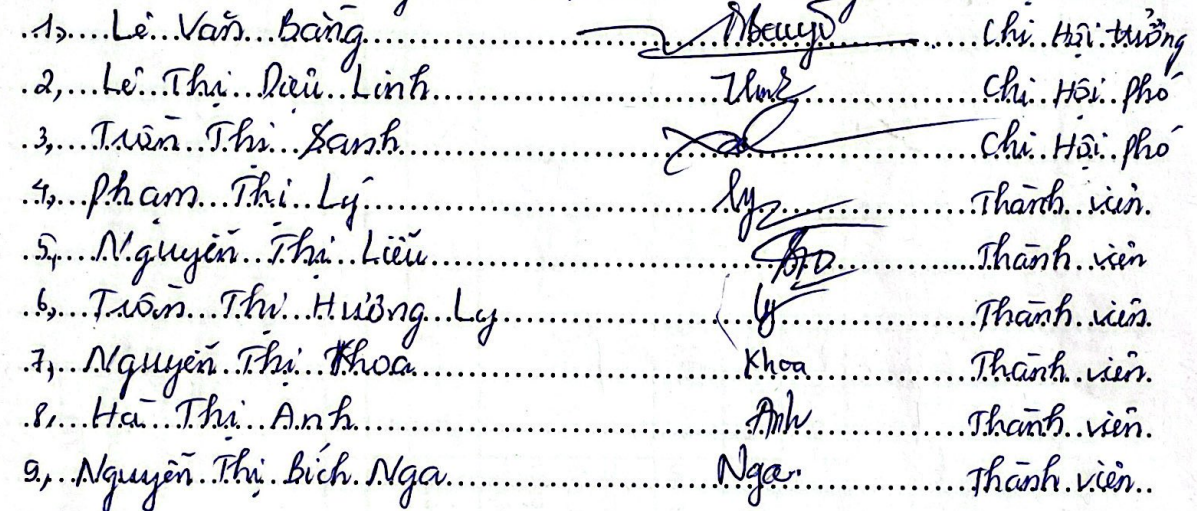 1, Lê Văn Bằng Chi Hội trưởng
2, Lê Thị Diệu Linh Chi Hội phó
3, Trần Thị Sanh Chi Hội phó
4, Phạm Thị Lý Ly Thành viên
5, Nguyễn Thị Liễu Thành viên
6, Trần Thị Hương Ly Ly Thành viên
7, Nguyễn Thị Khoa Khoa Thành viên
8, Hà Thị Anh Anh Thành viên
9, Nguyễn Thị Bích Nga Nga Thành viên